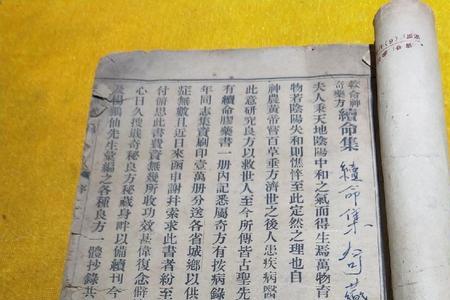 續命集
救命神
奇藥方
續命集
夫人秉天地陰陽中和之氣而得生焉萬物育
物若陰陽失和則憔悴至此定然之理也自
神農黃帝嘗百草垂方濟世之後人患疾病醫
此意研究良方以救世人至今所傳皆古聖先
有續命膠藥書一册內記悉屬奇方有按病錄
年同志集資刷印壹萬册分送各省城鄉以供
症無數且近日來函申謝并索求此書者紛至
付備思此書費資無幾所收功效甚偉復念鮮
心日久搜覔奇良方秘藏身畔以備續刊今
及楊鶴仙先生彙編之各種良方一體抄錄共